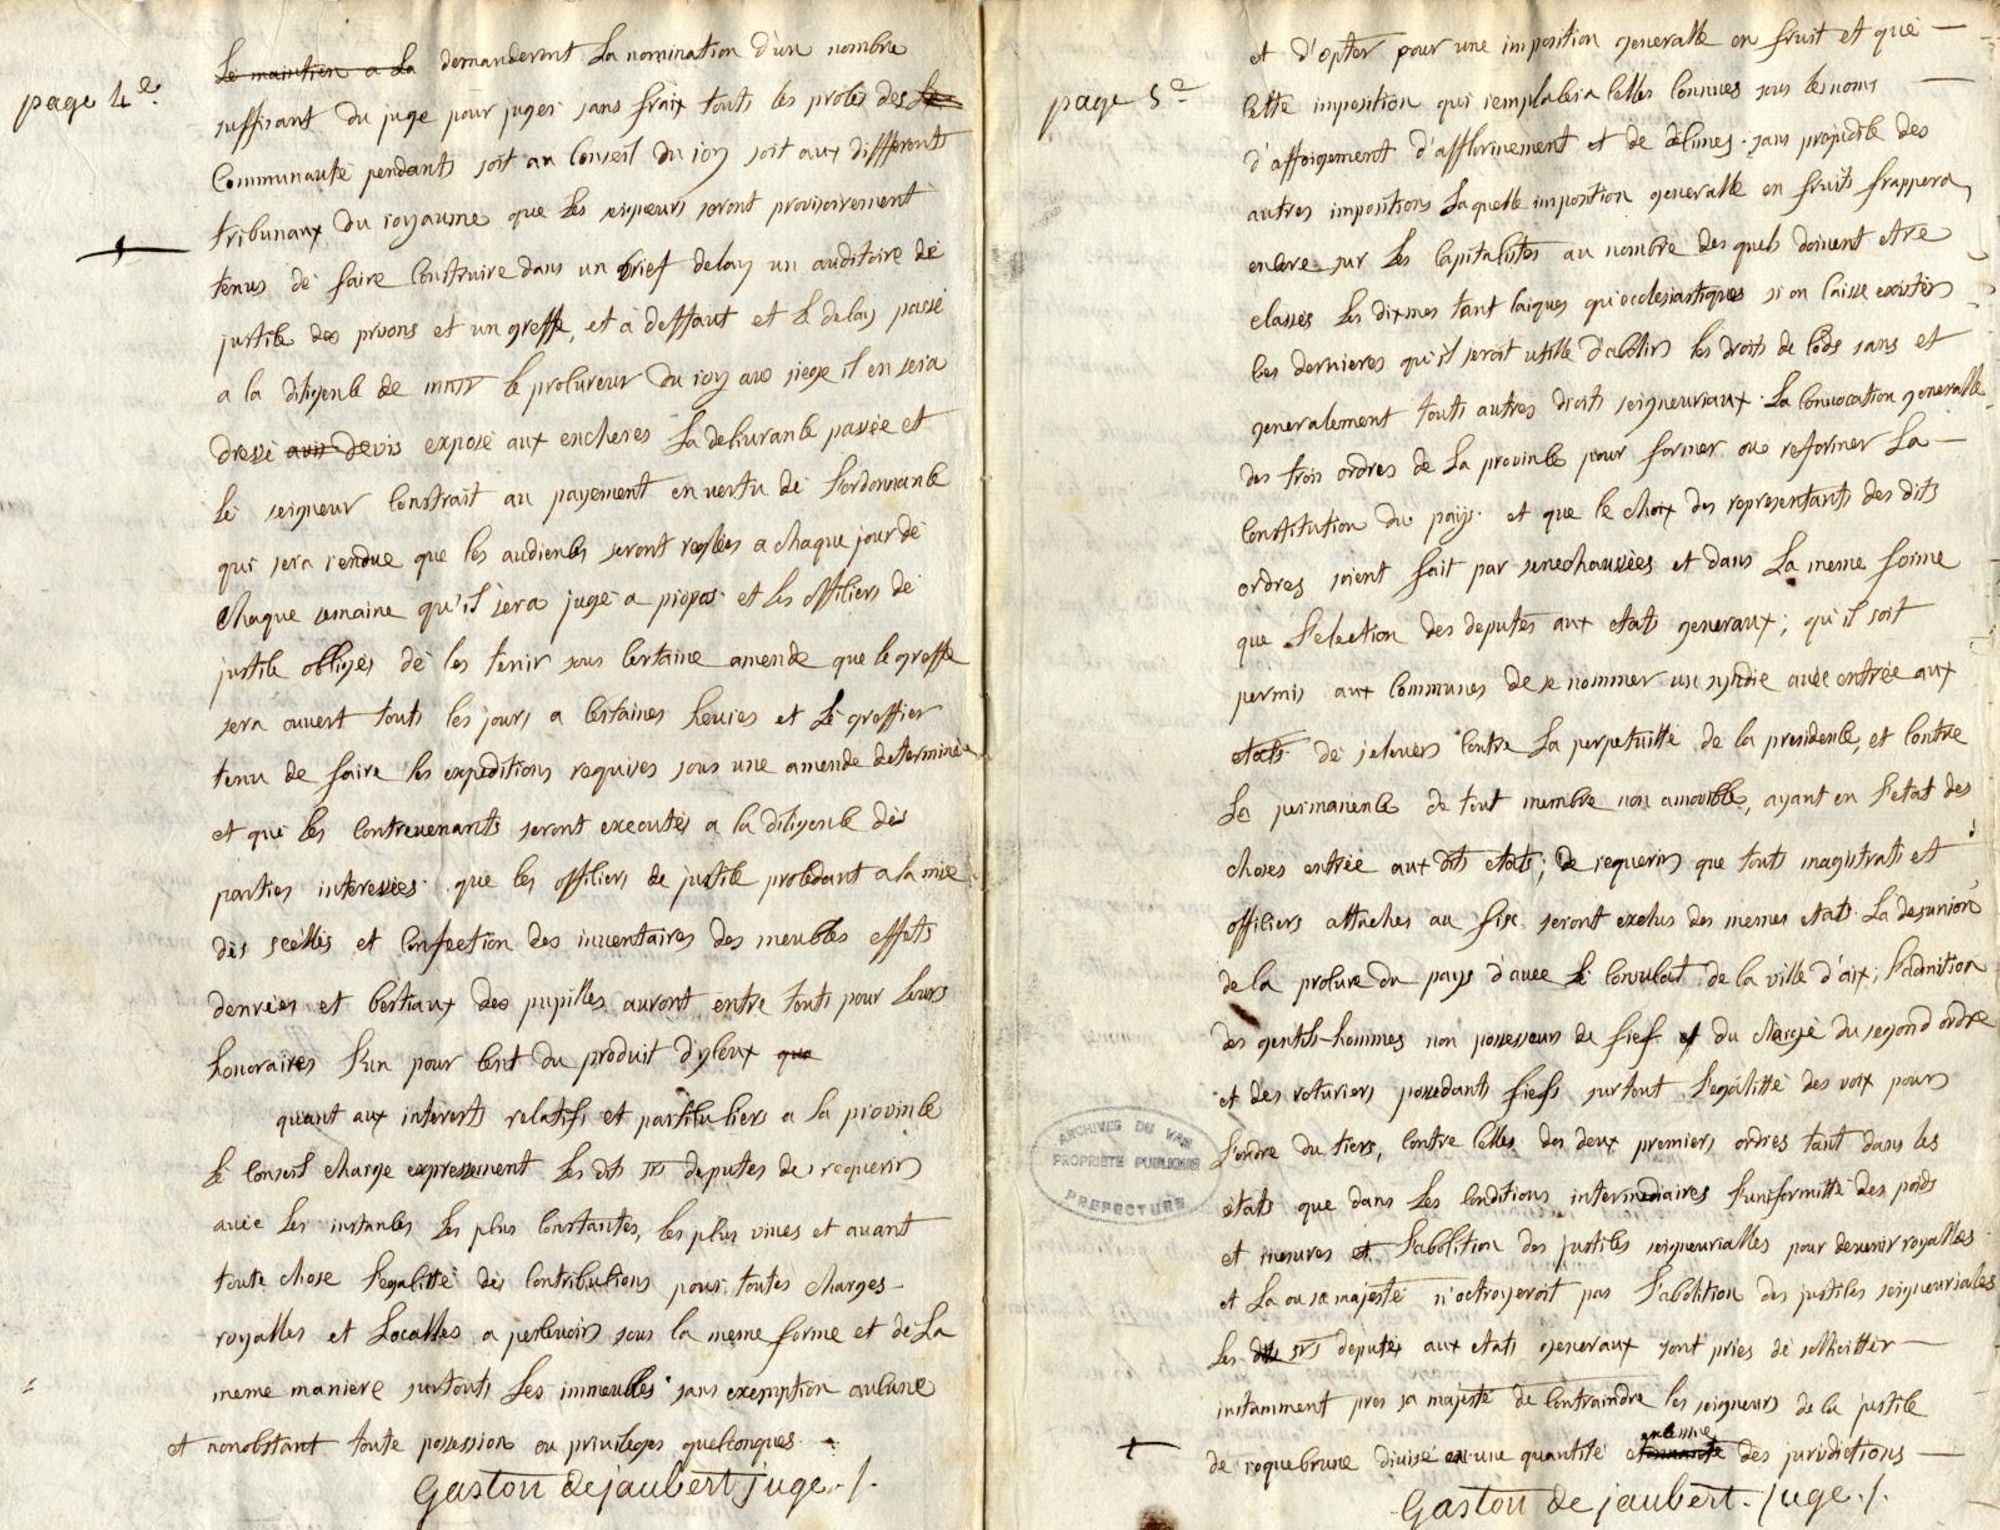 page 4e.
Le maintien a La demanderont La nomination d'un nombre
suffisant du juge pour juger sans fraix touts les procés des Le
Communauté pendants soit au Conseil du roy soit aux diffferents
tribunaux du royaume que Les seigneurs seront provisoirement
tenus de faire Construire dans un brief delay un auditoire de
justice des prisons et un greffe, et a deffaut et Le delay passé
a la diligence de monsr le procureur du roy au siege il en sera
dressé avis devis exposé aux encheres La delivrance passée et
Le seigneur Constrait au payement en vertu de L'ordonnance
qui sera rendue que les audiences seront reglées a chaque jour de
Chaque semaine qu'il sera jugé a propos et les officiers de
justice obligés de les tenir sous certaine amende que le greffe
sera ouvert touts les jours a certaines heures et Le greffier
tenu de faire les expeditions requises sous une amende determinée
et que les Contrevenants seront executés a la diligence des
parties interessées que les officiers de justice procedant a la mise
des scéllés et Confection des inventaires des meubles effets
denrées et bestiaux des pupilles auront entre touts pour Leurs
honoraires L'un pour cent du produit d'yceux que
quant aux interests relatifs et particuliers a La province
Le Conseil charge expressement Les dits srs deputés de requerir
avec Les instances Les plus Constantes, les plus vives et avant
toute chose L'egalitté des Contributions pour toutes charges
royalles et Localles a percevoir sous la meme forme et de La
meme maniere surtouts Les immeubles sans exemption aucune
et nonobstant toute possession ou privileges quelconques.
Gaston de jaubert juge./.
page 5e
et d'opter pour une imposition generalle en fruit et que
Cette imposition qui remplacera Celles Connues sous les noms
d'affoigement d'afflorinement et de décimes sans prejudice des
autres impositions Laquelle imposition generalle en fruits frappera
encore sur Les Capitalistes au nombre des quels doivent etre
classés Les dixmes tant laiques qu'ecclesiastiques si on laisse exister
Ces dernieres qu'il seroit utille d'abolir les droits de lods sans et
generalement touts autres droits seigneuriaux La Convocation generalle
des trois ordres de La province pour former ou reformer La
Constitution du pays et que le choix des representants des dits
ordres soient fait par senechaussées et dans La meme forme
que L'election des deputés aux etats generaux; qu'il soit
permis aux Communes de se nommer un syndic avec entrée aux
etats de s'elever Contre La perpetuitté de la presidence, et Contre
La permanence de tout membre non amovible, ayant en L'etat des
choses entrée aux dits etats; de requerir que touts magistrats et
officiers attachés au fisc seront exclus des memes etats La desunion
de la procure du pays d'avec Le Consulat de la ville d'aix; L'admition
des gentils-hommes non possesseurs de fief et du clergé du segond ordre
et des roturiers possedants fiefs surtout L'egalitté des voix pour
L'ordre du tiers, Contre Celles des deux premiers ordres tant dans les
etats que dans Les Conditions intermediaires L'uniformitté des poids
et mesures et L'abolition des justices seigneurialles pour devenir royalles
et La ou sa majesté n'octroyeroit pas L'abolition des justices seigneuriales
Les dits srs deputés aux etats generaux sont priés de sollicitter
instamment pres sa majesté de Contraindre les seigneurs de la justice
ancienne
de roquebrune divisé en une quantité etonnante des jurisdictions
Gaston de jaubert. juge./.
ARCHIVES DU VAR
PROPRIETE PUBLIQUE
PREFECTURE